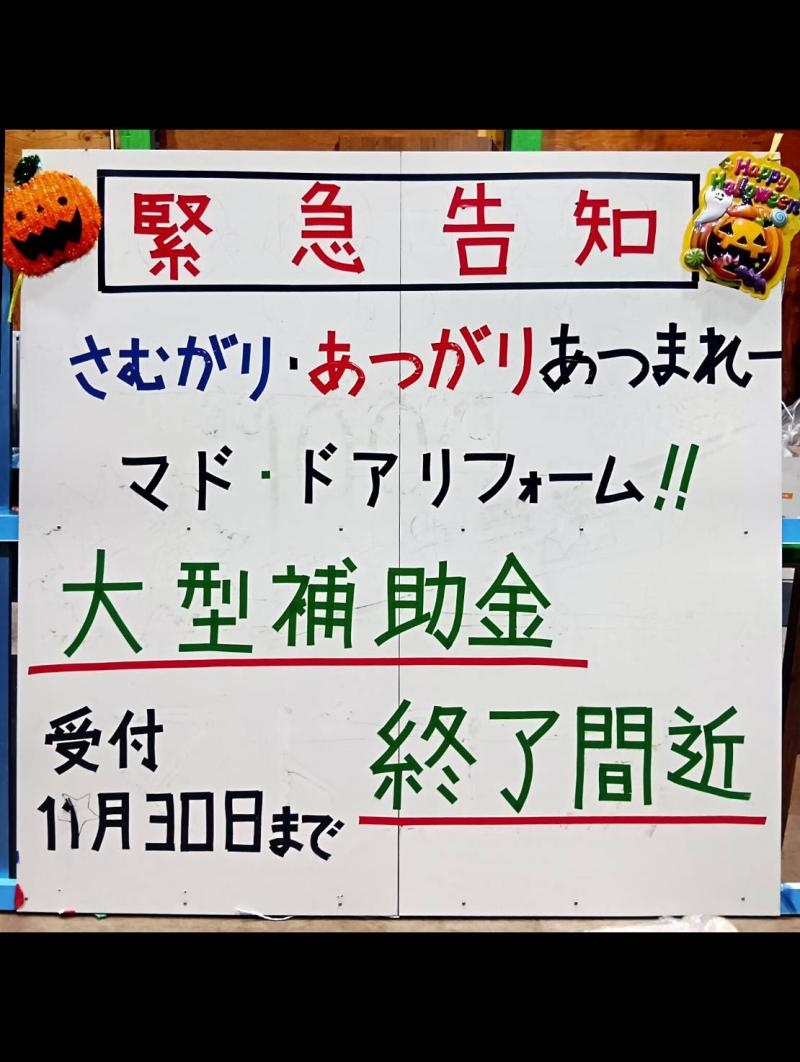 緊急告知
Happy
Halloween
さむがり・あつがりあつまれー
マド・ドアリフォーム!!
大型補助金
受付
終了間近
11月30日まで